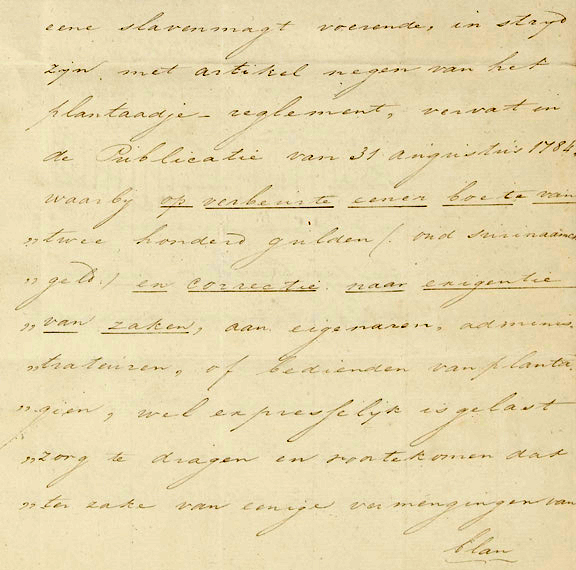 eene slavenmagt voerende, in stryd
zijn met artikel negen van het
plantaadje- reglement, vervat in
de Publicatie van 31 augustus 1784.
waarby op verbeurte eener boete van
"twee honderd gulden (oud surinaamsch
"geld.) en correctie naar exigentie
"van zaken, aan eigenaren, adminis
"trateuren, of bedienden van planta
"gien, wel expresselijk is gelast
"zorg te dragen en voortekomen dat
"ter zake van eenige vermengingen van
blan